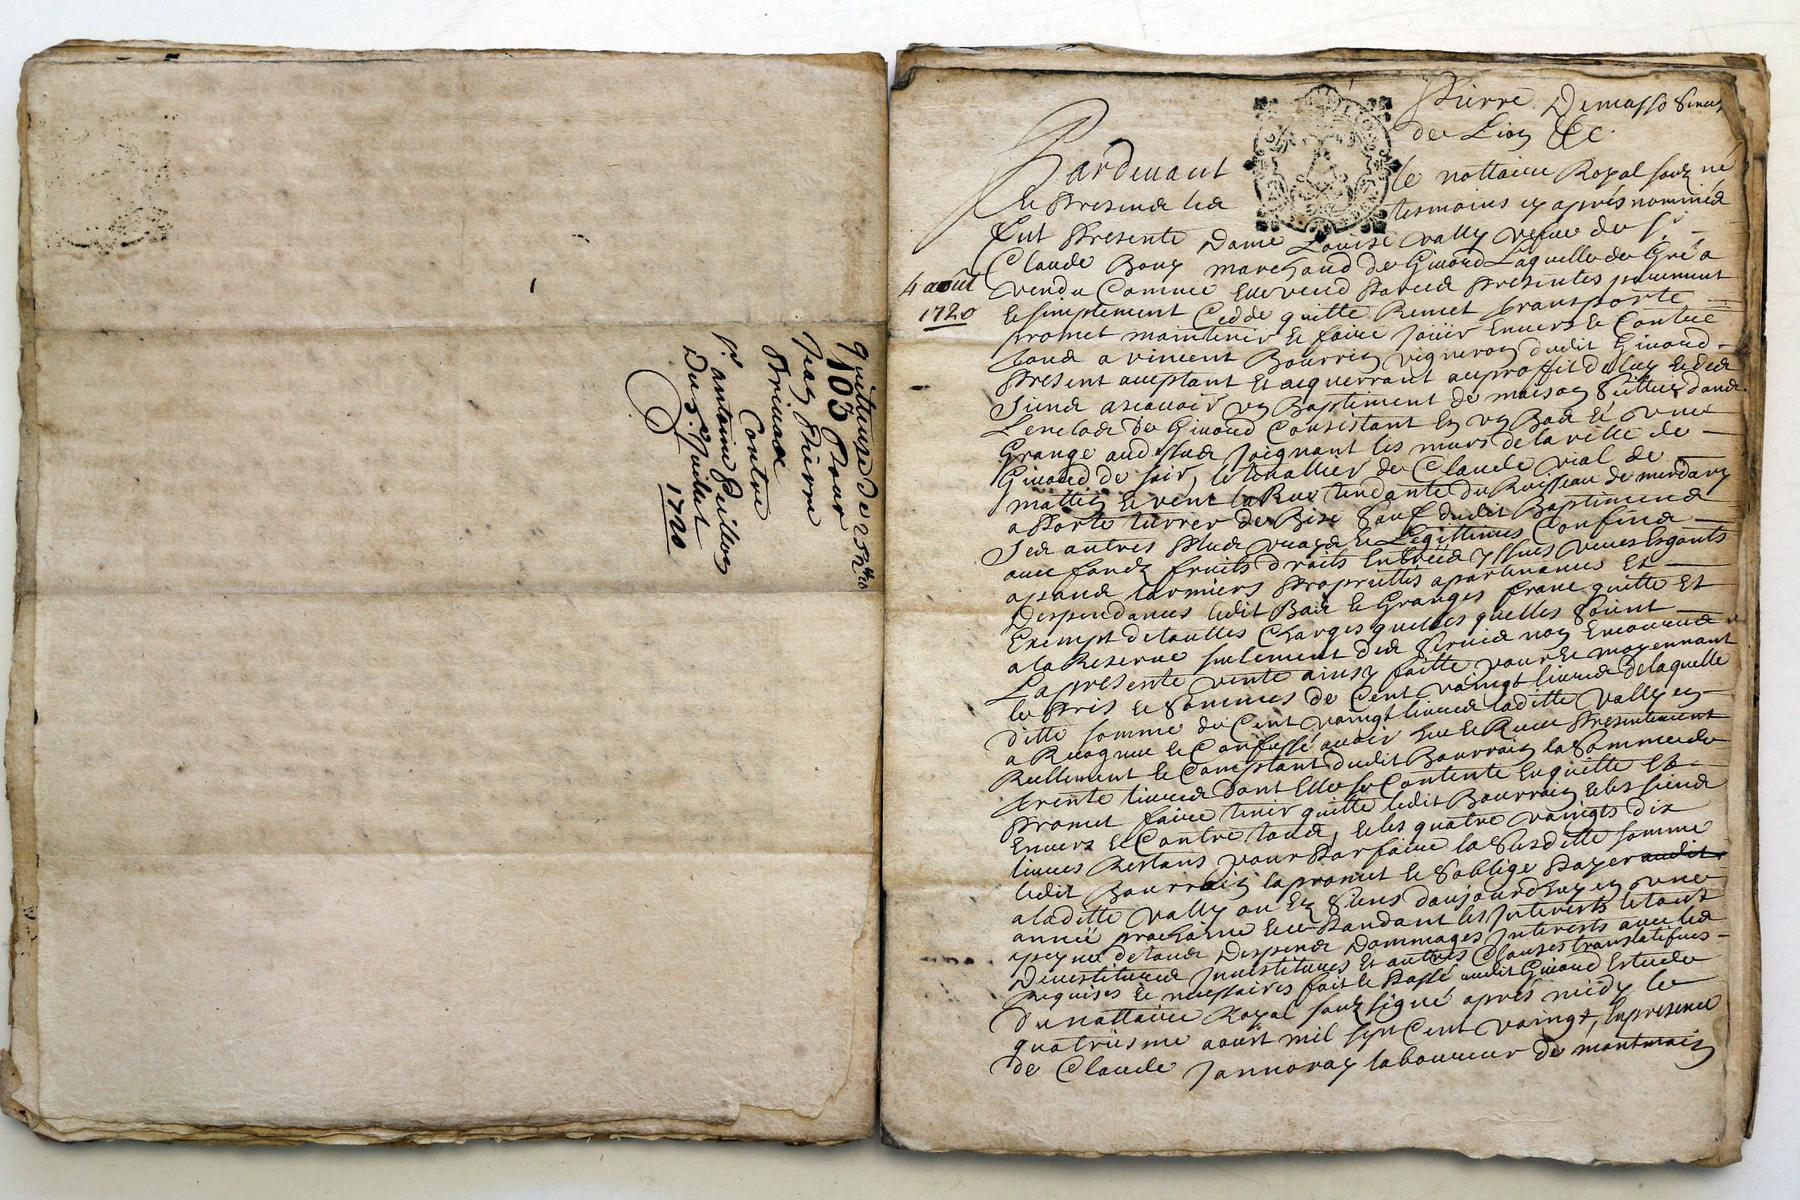 quittense de 252#
103 Pour
Jean Pierre
Brivase
Contre
Sr. antoine Peillon
Du 5e Juillet
1720
Pierre Demasso
de Lion &c
Pardevant le nottaire Royal souz né
Et Presence les tesmoins cy aprés nommés
fut Presente Dame Louise vally vefue de Sr.
Claude Bouy marchand de Giuord Laquelle de Gré a
4 août
1720
vendu Comme Elle vend Par ces Presentes purement
Et simplement Cedde quitte Remet transporte
promet maintenir Et faire Joüir Enuers Et Contre
tous a vincent Bourrin vigneron dudit Giuord
Present acceptant Et acquerrant au proffit de luy Et des
Siens ascauoir un Bastiment de maison Scittué dans
Lenclos de Giuord Consistant En un Bas Et une
Grange audessus Joignant les murs de la ville de
Giuord de soir, de Claude vial de
mattin Et vent la Rue tendante du Ruisseau de merdary
a Porte de Bise Sauf dudit Bastiment
Ses autres Plus vrays Et Legittimes Confins
auec fonds fruits droits Entrées yssues
Proprietés apartenances Et
Dependances ledit Bas Et Granges franc quitte Et
Exempt de touttes Charges quelles quelles Soient
a la Reserue seulement des Seruis non
La presente vente ainsy faitte pour Et moyennant
le Pris Et Sommes de Cent vaingt liures de laquelle
ditte somme de Cent vaingt liures laditte vally en
a Recogneu Et Confessé auoir Eu Et Receu Presentement
Reellement Et Comptant dudit Bourrin la Somme de
trente liures dont Elle se Contente En quitte Et
Promet faire tenir quitte ledit Bourrin Et les siens
Enuers Et Contre tous, Et les quatre vaingts dix
liures Restans pour Parfaire la Susditte somme
ledit Bourrin la promet Et Soblige Payer audit
a laditte vally ou Es Siens daujourdhuy en une
année prochaine Et Pandant les Interests le tout
a peyne de tous Despens Dommages Interests auec les
Deuestitures Inuestitures Et autres Clauses translatifues
Requises Et necessaires fait Et Passé audit Giuord Estude
Du nottaire Royal souzsigné aprés midy le
quatriesme aoust mil sept Cent vaingt, En presence
de Claude Jannoray laboureur de montmain